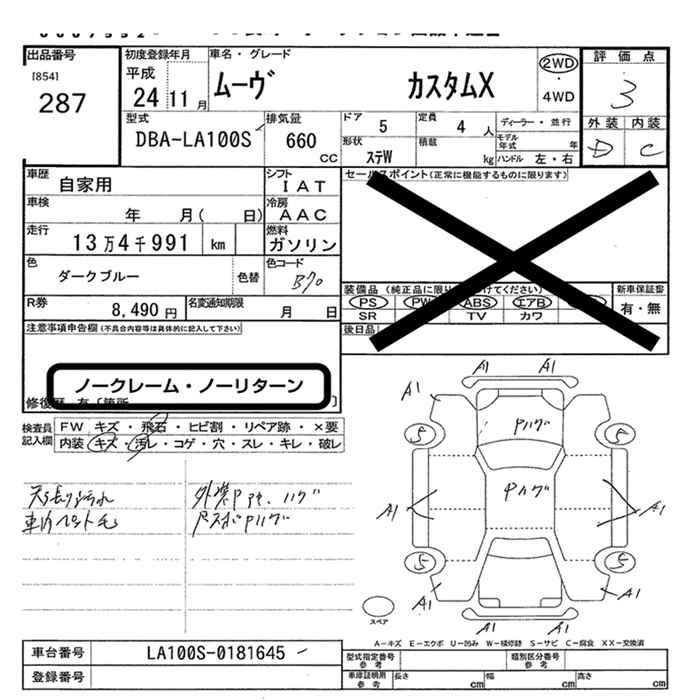 出品番号
[854]
287
初度登録年月
平成
24 11 月
車名・グレード
ムーヴ カスタムX
2WD
・
4WD
評価点
3
外装 内装
D C
型式
DBA-LA100S
排気量
660
CC
ドア
5
定員
4 人
ディーラー・並行
モデル
年式 年
形状
ステW
積載
kg
ハンドル 左・右
車歴
自家用
シフト
I AT
車検
年 月( 日)
冷房
AAC
走行
13万4千991 km
燃料
ガソリン
色
ダークブルー
色替
色コード
B70
R券
8,490 円
名変通知期限
月 日
セールスポイント(正常に機能するものに限ります)
装備品(純正品に限り
けてください)
新車保証書
PS PW ABS エアB
SR TV カワ
有・無
後日品
注意事項申告欄(不具合内容等は具体的に記入して下さい)
ノークレーム・ノーリターン
修復歴 有〔箇所 〕
検査員
記入欄
FW キズ・飛石・ヒビ割・リペア跡・×要
内装 キズ・汚レ・コゲ・穴・スレ・キレ・破レ
天張り汚れ
車内ペット毛
A1 A1
A1
Pハゲ
5 5
Pハゲ
A1 A1
5 5
A1 A1
A1
スペア
A−キズ E−エクボ U−凹み W−補修跡 S−サビ C−腐食 XX−交換済
車台番号
LA100S-0181645
登録番号
型式指定番号
参考
類別区分番号
参考
車庫証明用
参考
長さ cm
幅 cm
高さ cm